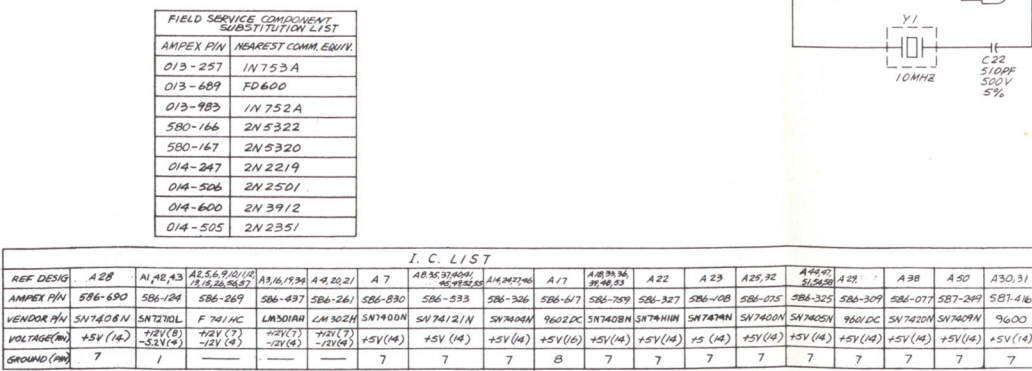 FIELD SERVICE COMPONENT
SUBSTITUTION LIST
AMPEX P/N NEAREST COMM. EQUIV.
013-257 1N753A
013-689 FD600
013-983 1N752A
580-166 2N5322
580-167 2N5320
014-247 2N2219
014-506 2N2501
014-600 2N3912
014-505 2N2351
Y1
10MHZ
C22
510PF
500V
5%
I. C. LIST
REF DESIG A28 A1,42,43 A2,5,6,9,10,11,12, A3,16,19,34 A4,20,21 A7 A8,35,37,40,41, A14,24,27,46 A17 A18,33,36, A22 A23 A25,32 A44,47, A29, A38 A50 A30,31
13,15,26,56,57 45,49,52,55 39,48,53 51,54,58
AMPEX P/N 586-690 586-124 586-269 586-437 586-261 586-830 586-533 586-326 586-617 586-759 586-327 586-108 586-075 586-325 586-309 586-077 587-249 587-416
VENDOR P/N SN7406N SN72710L F 741HC LM301AH LM302H SN7400N SN74121N SN7404N 9602DC SN7408N SN74H11N SN7474N SN7400N SN7405N 9601DC SN7420N SN7409N 9600
VOLTAGE(PIN) +5V (14) +12V(8) +12V (7) +12V(7) +12V(7) +5V(14) +5V (14) +5V(14) +5V(16) +5V(14) +5V(14) +5 (14) +5V(14) +5V(14) +5V(14) +5V(14) +5V(14) +5V(14)
-5.2V(4) -12V (4) -12V(4) -12V(4)
GROUND (PIN) 7 1 — — — 7 7 7 8 7 7 7 7 7 7 7 7 7